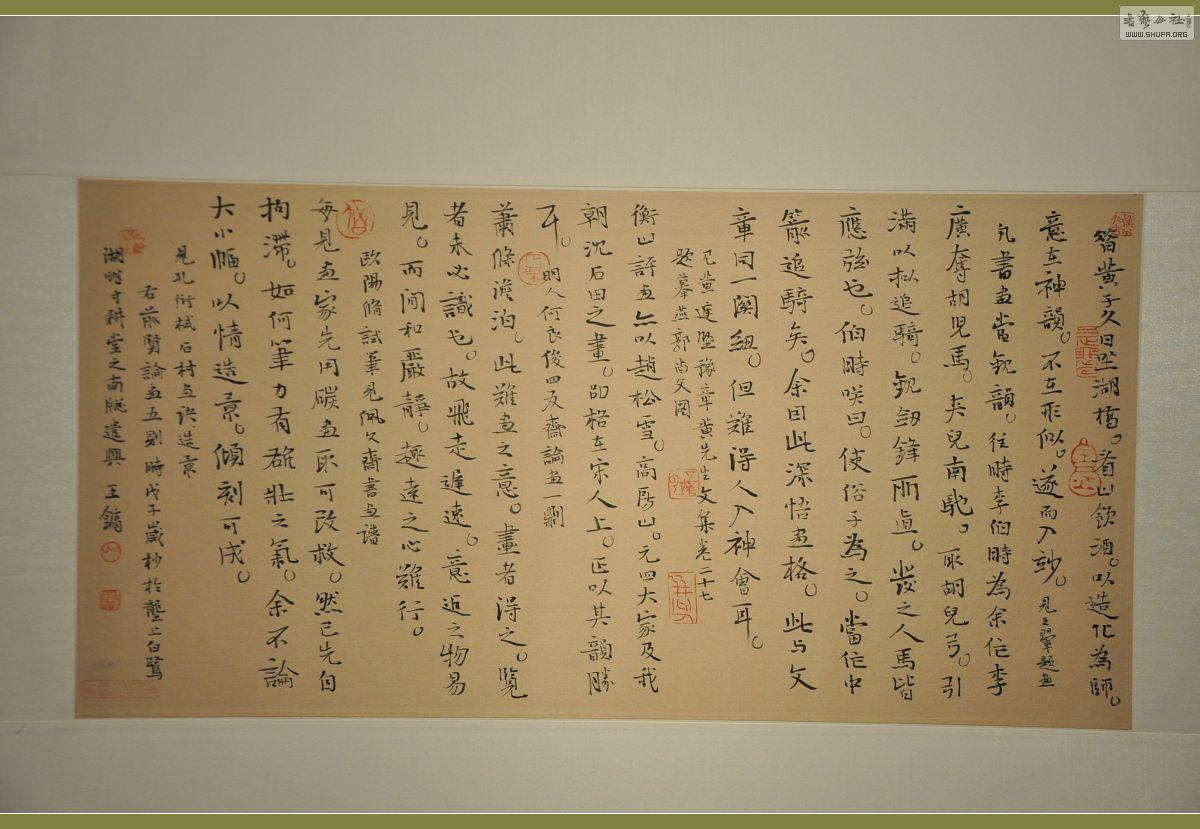 昔黃子久日坐湖橋。看山飲酒。以造化為師。
意在神韻。不在形似。遂而入妙。見王翬題畫
凡書畫當觀韻。往時李伯時為余作李
廣奪胡兒馬。夾兒南馳。取胡兒弓。引
滿以擬追騎。觀劒鋒所直。發之人馬皆
應弦也。伯時咲曰。使俗子為之。當作中
箭追騎矣。余因此深悟畫格。此與文
章同一關紐。但難得人入神會耳。
見黃庭堅豫章黃先生文集卷二十七
題摹燕郭尚父圖
衡山評畫亦以趙松雪。高房山。元四大家及我
朝沈石田之畫。即格在宋人上。正以其韻勝
耳。
明人何良俊四友齋論畫一則
蕭條澹泊。此難畫之意。畫者得之。覽
者未必識也。故飛走遲速。意近之物易
見。而閒和嚴靜。趣遠之心難行。
歐陽脩試筆見佩文齋書畫譜
每見畫家先用碳畫取可改救。然已先自
拘滯。如何筆力有雄壯之氣。余不論
大小幅。以情造景。傾刻可成。
見孔衍栻石村畫訣造景
右前賢論畫五則時戊子歲杪於龔上白鷺
湖畔寸耕堂之南牎遣興 王鏞
书法公社
WWW.SHUFA.ORG